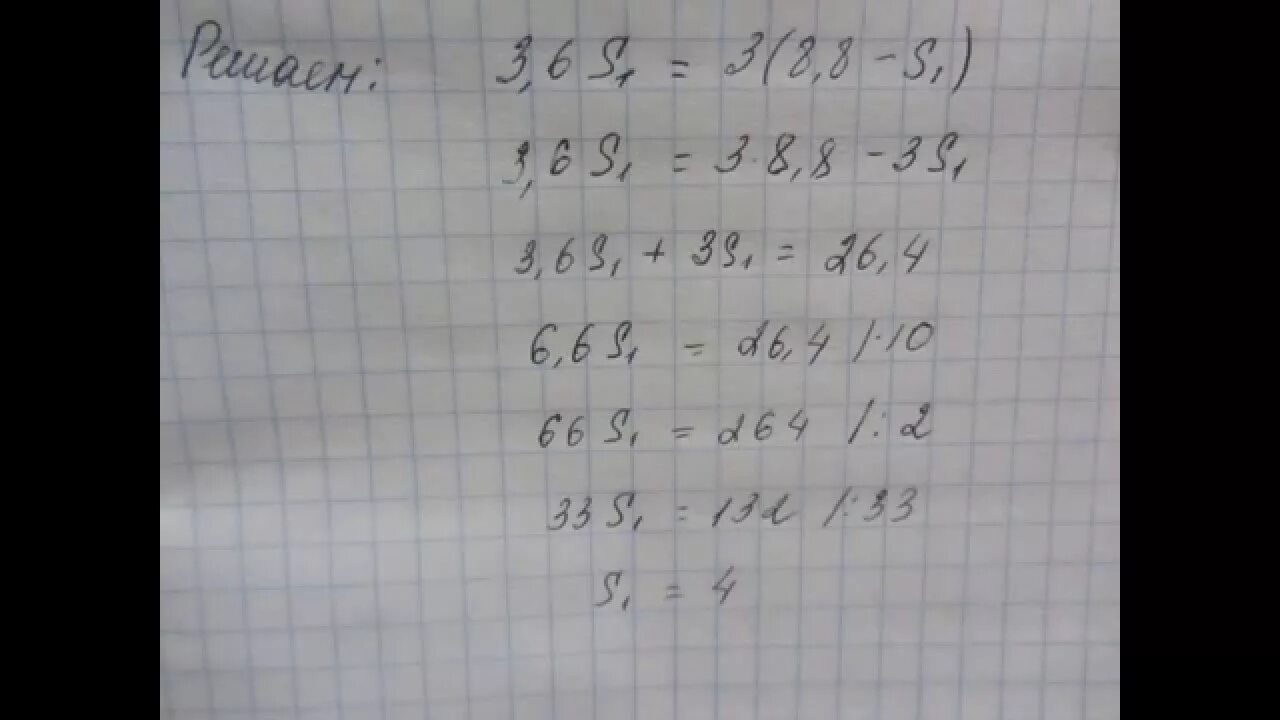 Решаем: 3,6 S₁ = 3(8,8 – S₁)
3,6 S₁ = 3·8,8 – 3S₁
3,6S₁ + 3S₁ = 26,4
6,6S₁ = 26,4 /·10
66 S₁ = 264 /:2
33 S₁ = 132 /:33
S₁ = 4